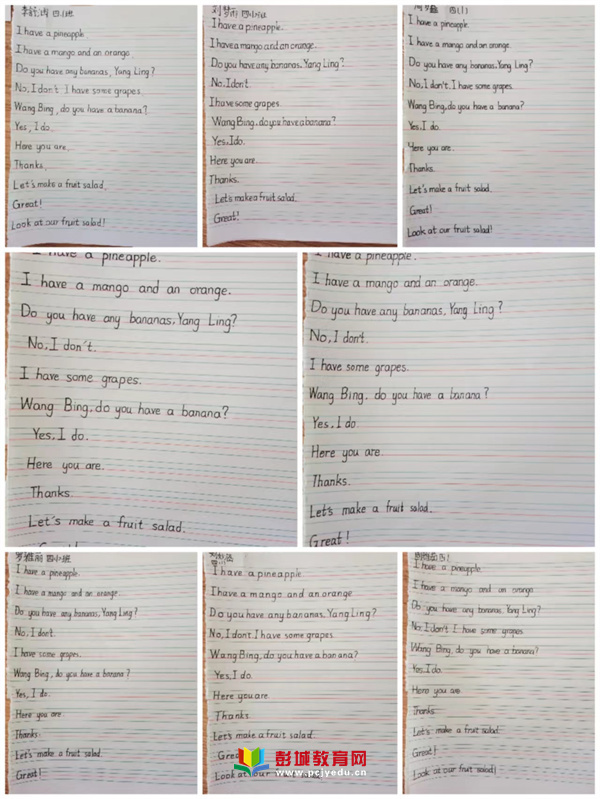 I have a pineapple
I have a mango and an orange.
Do you have any bananas, Yang Ling?
No, I don't I have some grapes.
Wang Bing, do you have a banana?
Yes, I do.
Here you are.
Thanks.
Let's make a fruit salad.
Great!
Look at our fruit salad!
I have a pineapple.
I have a mango and an orange.
Do you have any bananas, Yang Ling?
No, I don't.
I have some grapes.
Wang Bing, do you have a banana?
Yes, I do.
Here you are.
Thanks.
Let's make a fruit salad.
Great!
四(1)
I have a pineapple.
I have a mango and an orange.
Do you have any bananas, Yang Ling?
No, I don't. I have some grapes.
Wang Bing, do you have a banana?
Yes, I do.
Here you are.
Thanks.
Let's make a fruit salad.
Great!
Look at our fruit salad!
I have a pineapple.
I have a mango and an orange.
Do you have any bananas, Yang Ling?
No, I don't.
I have some grapes.
Wang Bing, do you have a banana?
Yes, I do.
Here you are.
Thanks.
Let's make a fruit salad.
I have a pineapple.
I have a mango and an orange.
Do you have any bananas, Yang Ling?
No, I don't.
I have some grapes.
Wang Bing, do you have a banana?
Yes, I do.
Here you are.
Thanks.
Let's make a fruit salad.
Great!
I have a pineapple.
I have a mango and an orange.
Do you have any bananas, Yang Ling?
No, I don't.
I have some grapes.
Wang Bing, do you have a banana?
Yes, I do.
Here you are.
Thanks.
Let's make a fruit salad.
Great!
I have a pineapple.
I have a mango and an orange
Do you have any bananas, Yang Ling?
No, I don't. I have some grapes
Wang Bing, do you have a banana?
Yes, I do.
Here you are.
Thanks.
Let's make a fruit salad.
Great!
Look at our
I have a pineapple
I have a mango and an orange
Do you have any bananas, Yang Ling?
No. I don't I have some grapes
Wang Bing, do you have a banana?
Yes, I do.
Here you are
Thanks
Let's make a fruit salad.
Great!
Look at our fruit salad!
彭城教育网
www.pcjyedu.cn